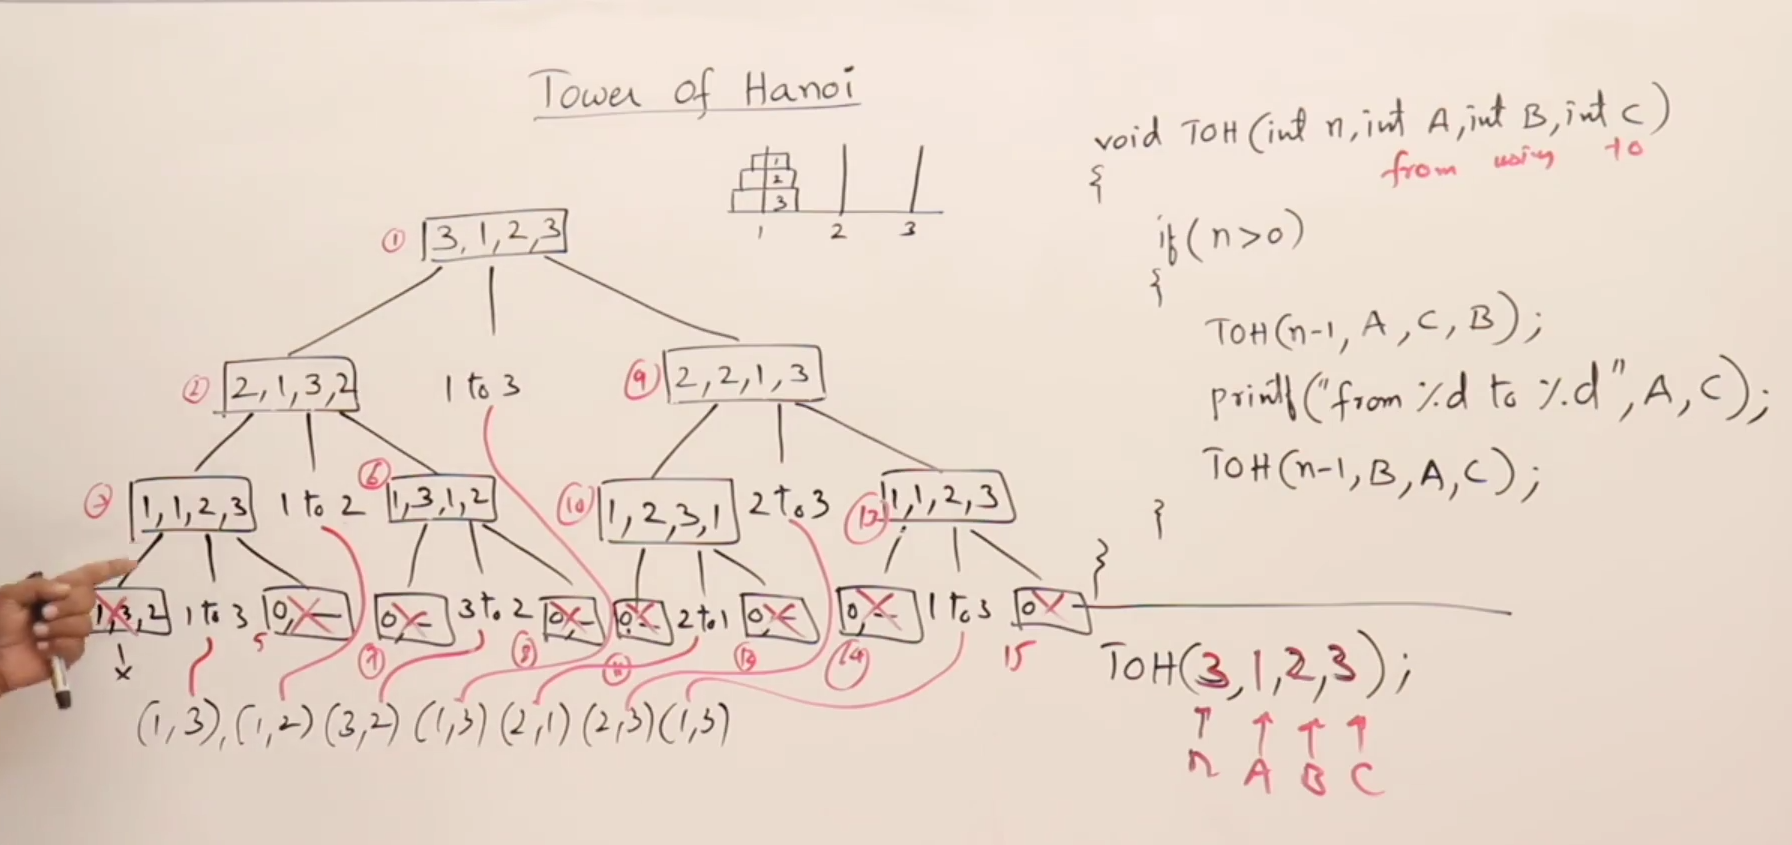 Tower of Hanoi
1
2
3
1 2 3
① 3,1,2,3
② 2,1,3,2 1 to 3 ⑨ 2,2,1,3
③ 1,1,2,3 1 to 2 ⑥ 1,3,1,2 ⑩ 1,2,3,1 2 to 3 1,1,2,3
1,3,2 1 to 3 0,– 0,– 3 to 2 0,– 0,– 2 to 1 0,– 0,– 1 to 3 0
x 5 ⑦ ⑧ ⑪ ⑭ 15
(1,3),(1,2) (3,2) (1,3) (2,1) (2,3) (1,3)
void TOH(int n,int A,int B,int C)
from using to
{
if(n>0)
{
TOH(n-1, A, C, B);
printf("from %d to %d", A, C);
TOH(n-1, B, A, C);
}
}
TOH(3,1,2,3);
↑ ↑ ↑ ↑
n A B C